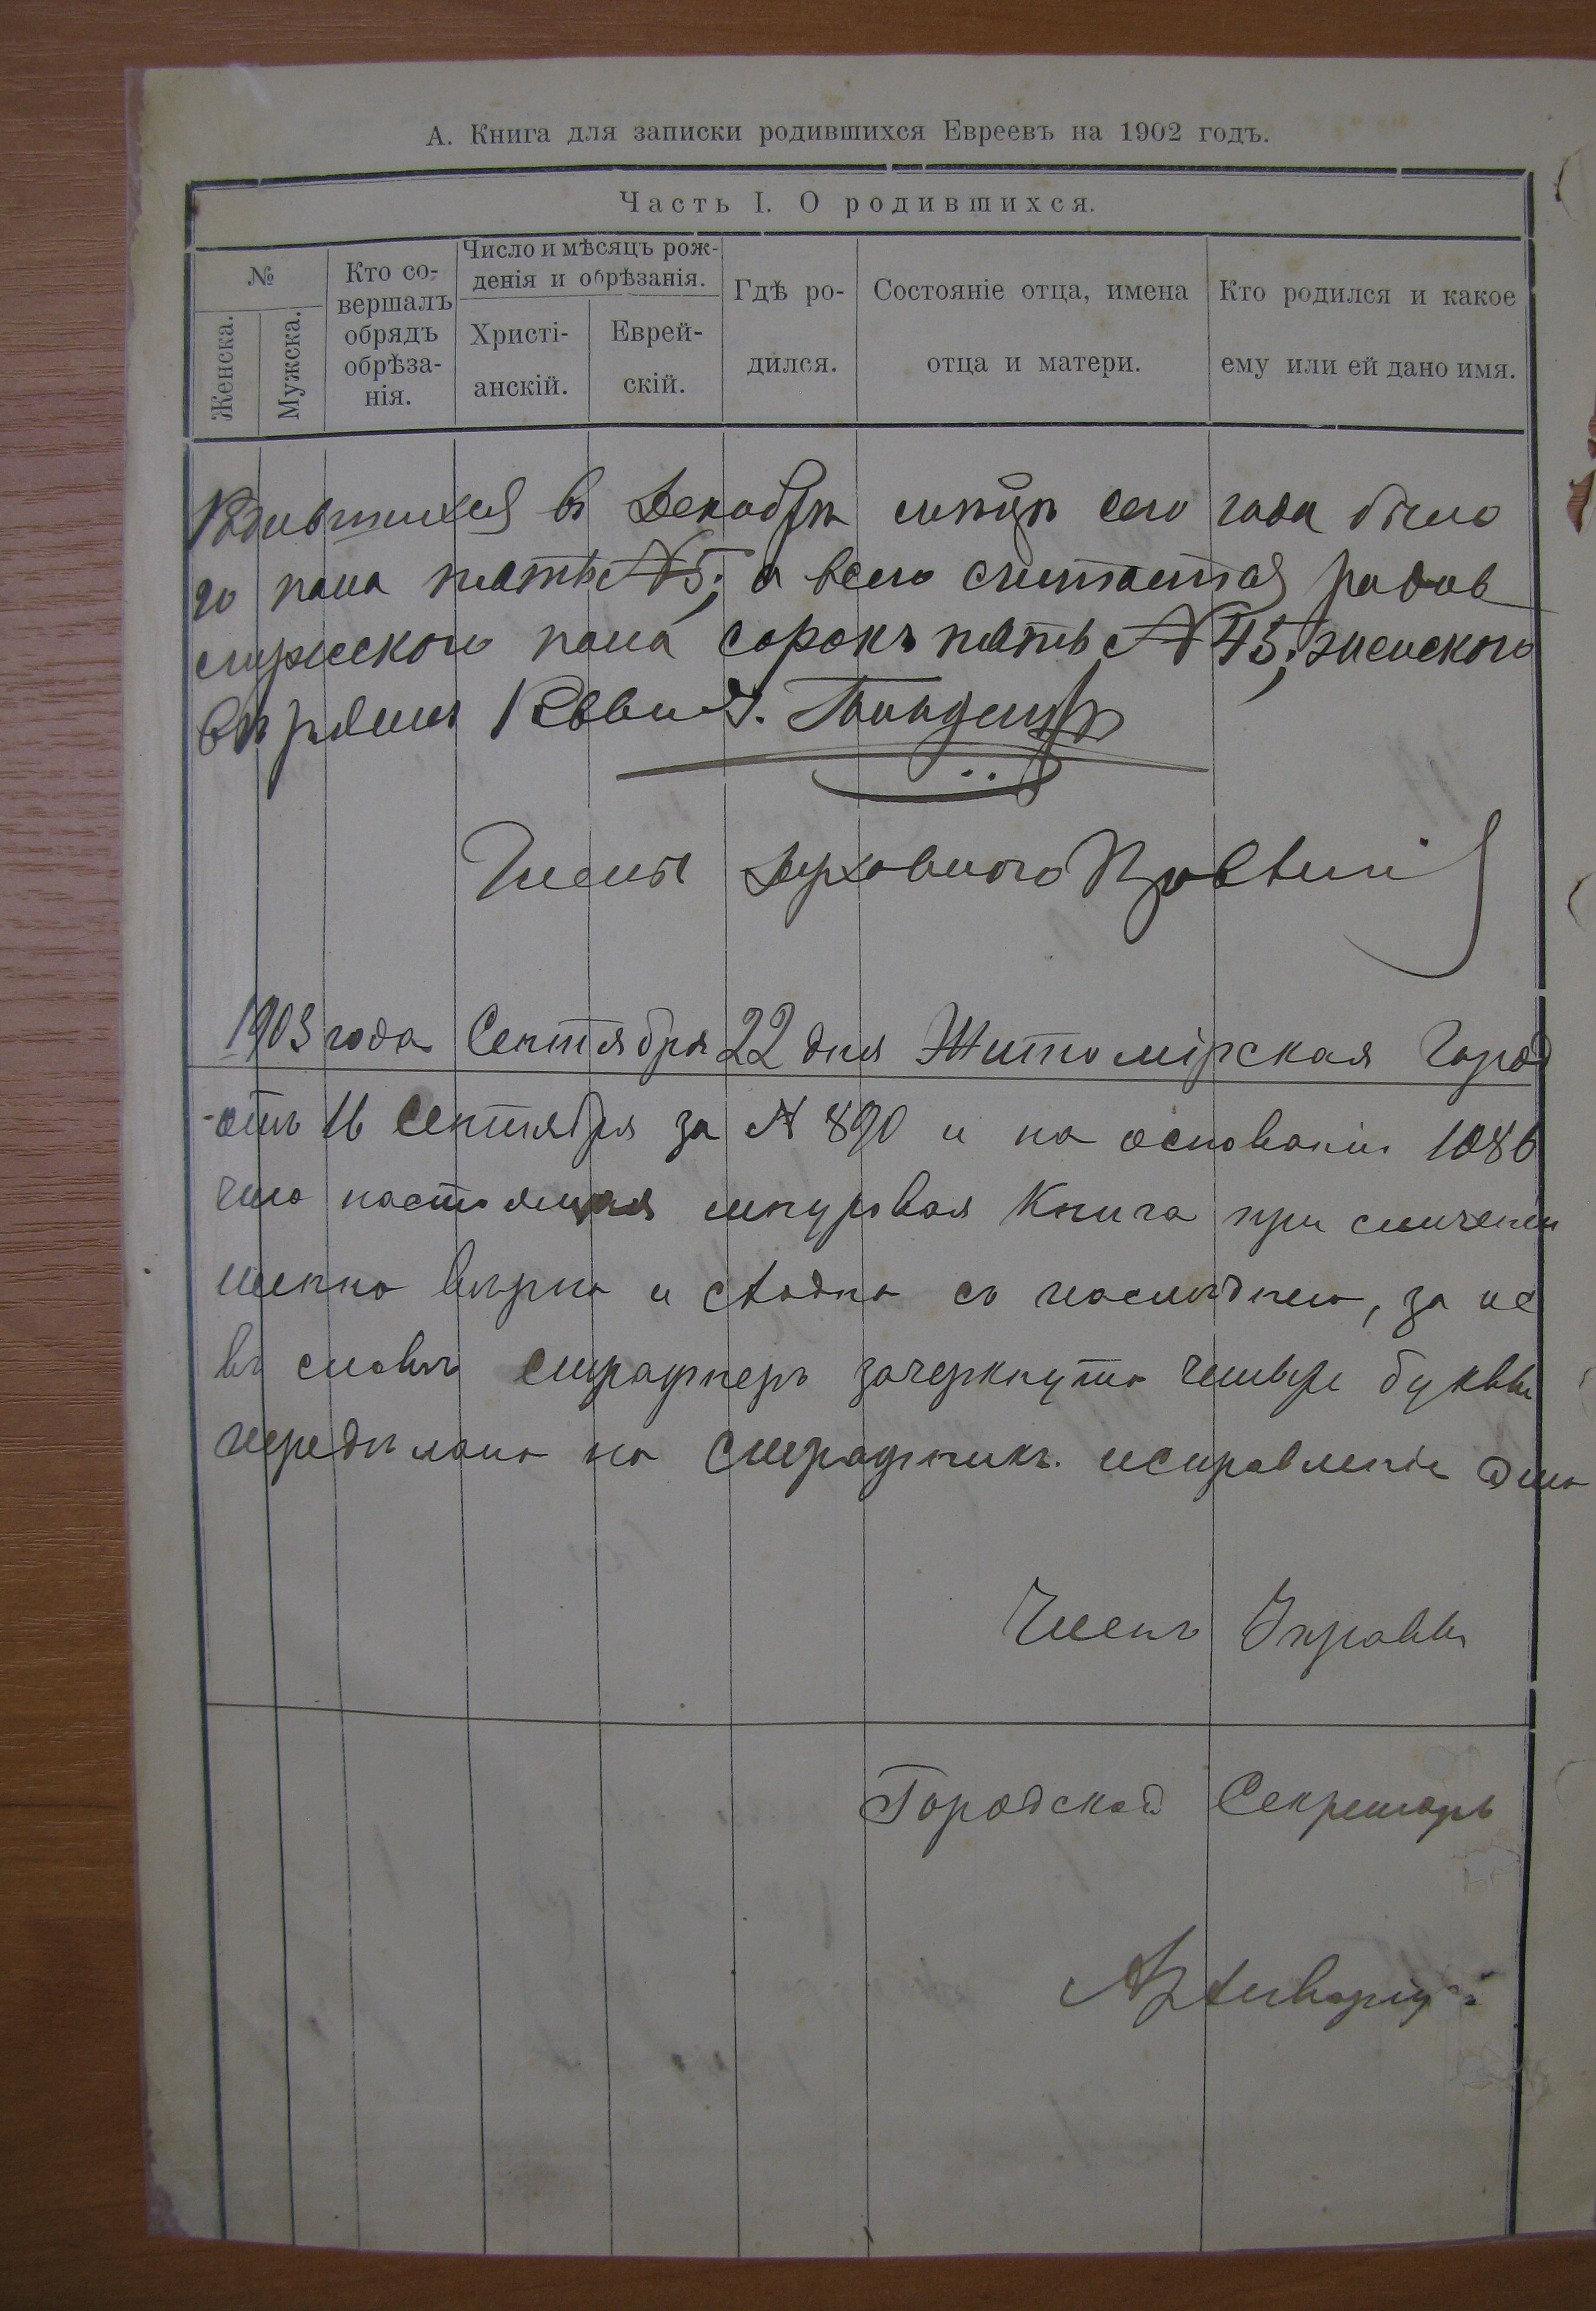 А. Книга для записки родившихся Евреевъ на 1902 годъ.
Часть I. О родившихся.
№
Женска.
Мужска.
Кто со-
вершалъ
обрядъ
обрѣза-
нія.
Число и мѣсяцъ рож-
денія и обрѣзанія.
Христі-
анскій.
Еврей-
скій.
Гдѣ ро-
дился.
Состояніе отца, имена
отца и матери.
Кто родился и какое
ему или ей дано имя.
Родившихся въ Декабрѣ мѣсяцѣ сего года было
го пола пять №5; а всего считается родив
мужеского пола сорокъ пять №45; женского
Раввинъ
Члены Духовного Правленія
1903 года Сентября 22 дня Житомірская Город
отъ 16 Сентября за № 890 и на основаніи 1086
что настоящая шнуровая Книга при сличеніи
шенно вѣрна и сходна съ послѣднею, за ис
въ словѣ зачеркнуто четыре буквы
передѣлано на исправленіе
Членъ Управы
Городской Секретарь